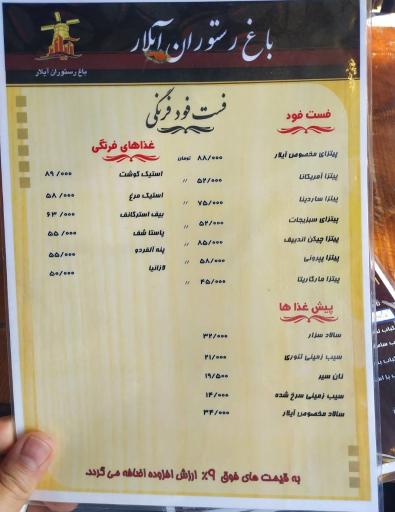 باغ رستوران آبلار
باغ رستوران آبلار
فست فود فرنگی
فست فود
پیتزای مخصوص آبلار ۸۸/۰۰۰ تومان
پیتزا آمریکانا ۵۲/۰۰۰ //
پیتزا ساردینا ۷۵/۰۰۰ //
پیتزای سبزیجات ۵۲/۰۰۰ //
پیتزا چیکن اندبیف ۸۵/۰۰۰ //
پیتزا پپرونی ۵۸/۰۰۰ //
پیتزا مارگاریتا ۴۵/۰۰۰ //
غذاهای فرنگی
استیک گوشت ۸۹/۰۰۰
استیک مرغ ۵۸/۰۰۰
بیف استرگانف ۶۳/۰۰۰
پاستا شف ۵۵/۰۰۰
پنه آلفردو ۵۵/۰۰۰
لازانیا ۵۰/۰۰۰
پیش غذا ها
سالاد سزار ۳۲/۰۰۰
سیب زمینی تنوری ۲۱/۰۰۰
نان سیر ۱۹/۵۰۰
سیب زمینی سرخ شده ۱۴/۰۰۰
سالاد مخصوص آبلار ۳۴/۰۰۰
به قیمت های فوق ۹٪ ارزش افزوده اضافه می گردد.